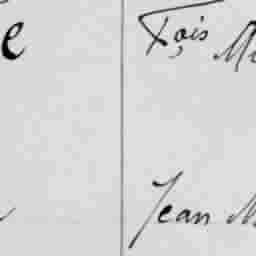 e
Fçois M
Jean M